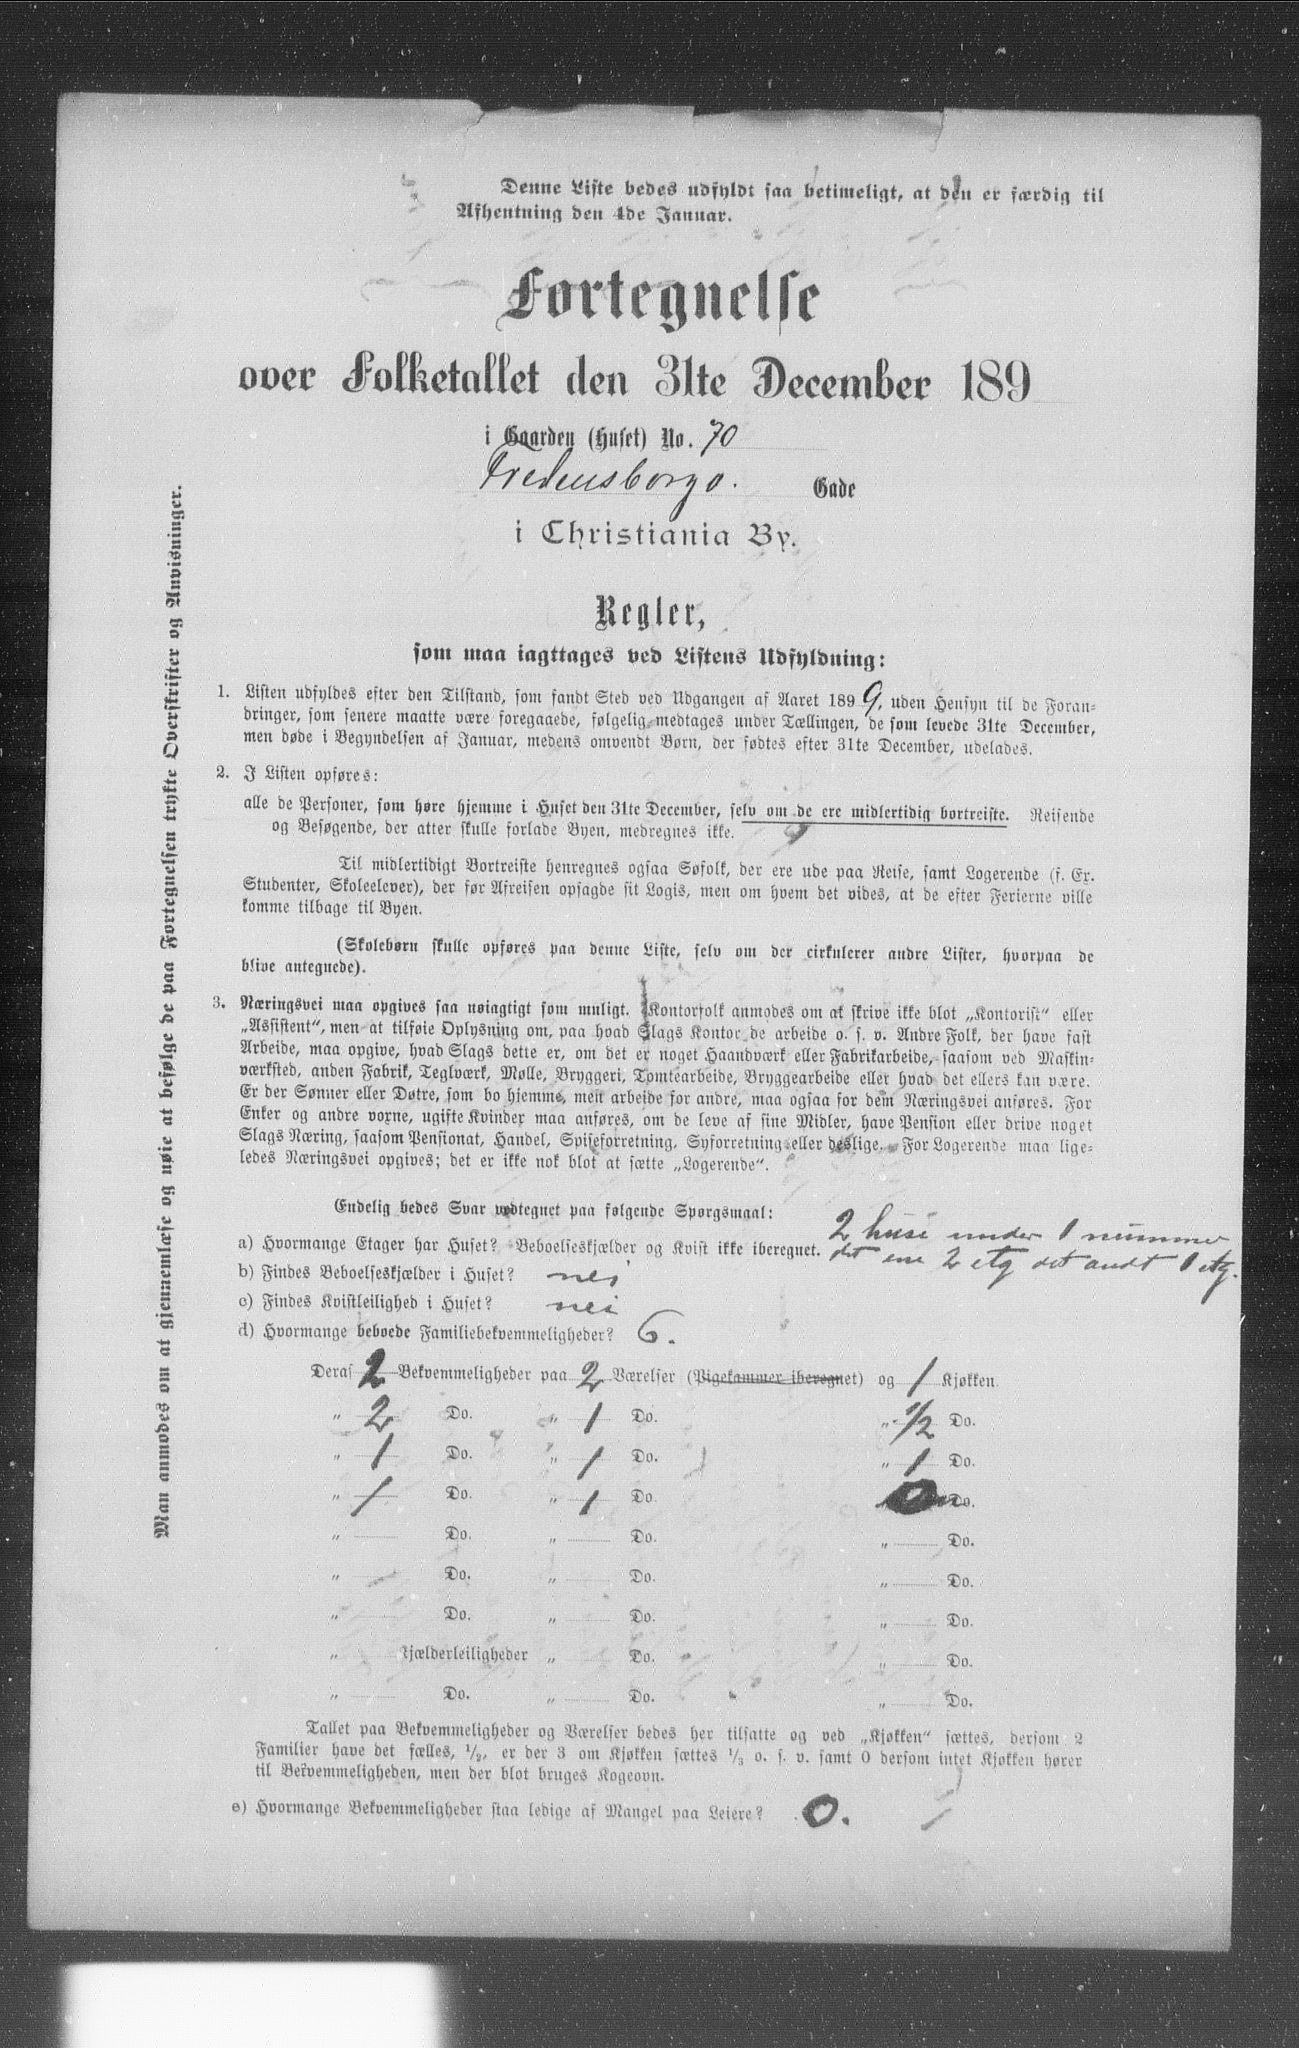 Denne Liste bedes udfyldt saa betimeligt, at den er færdig til
Afhentning den 4de Januar.
Fortegnelse
over Folketallet den 31te December 189
i Gaarden (Huset) No. 70
Fredensborgv. Gade
i Christiania By.
Regler,
som maa iagttages ved Listens Udfyldning:
1. Listen udfyldes efter den Tilstand, som fandt Sted ved Udgangen af Aaret 1899, uden Hensyn til de Foran-
dringer, som senere maatte være foregaaede, følgelig medtages under Tællingen, de som levede 31te December,
men døde i Begyndelsen af Januar, medens omvendt Børn, der fødtes efter 31te December, udelades.
2. I Listen opføres:
alle de Personer, som høre hjemme i Huset den 31te December, selv om de ere midlertidig bortreiste. Reisende
og Besøgende, der atter skulle forlade Byen, medregnes ikke.
Til midlertidigt Bortreiste henregnes ogsaa Søfolk, der ere ude paa Reise, samt Logerende (f. Ex.
Studenter, Skoleelever), der før Afreisen opsagde sit Logis, men om hvem det vides, at de efter Ferierne ville
komme tilbage til Byen.
(Skolebørn skulle opføres paa denne Liste, selv om der cirkulerer andre Lister, hvorpaa de
blive antegnede).
3. Næringsvei maa opgives saa nøiagtigt som muligt. Kontorfolk anmodes om at skrive ikke blot „Kontorist“ eller
„Assistent“, men at tilføie Oplysning om, paa hvad Slags Kontor de arbeide o. s. v. Andre Folk, der have fast
Arbeide, maa opgive, hvad Slags dette er, om det er noget Haandværk eller Fabrikarbeide, saasom ved Maskin-
værksted, anden Fabrik, Teglværk, Mølle, Bryggeri, Tomtearbeide, Bryggearbeide eller hvad det ellers kan være.
Er der Sønner eller Døtre, som bo hjemme, men arbeide for andre, maa ogsaa for dem Næringsvei anføres. For
Enker og andre voxne, ugifte Kvinder maa anføres, om de leve af sine Midler, have Pension eller drive noget
Slags Næring, saasom Pensionat, Handel, Spiseforretning, Syforretning eller deslige. For Logerende maa lige-
ledes Næringsvei opgives; det er ikke nok blot at sætte „Logerende“.
Endelig bedes Svar vedtegnet paa følgende Spørgsmaal:
a) Hvormange Etager har Huset? Beboelseskjælder og Kvist ikke iberegnet. 2 huse under 1 nummer
det ene 2 etg det andt 1 etg.
b) Findes Beboelseskjælder i Huset? nei
c) Findes Kvistleilighed i Huset? nei
d) Hvormange beboede Familiebekvemmeligheder? 6.
Deraf 2 Bekvemmeligheder paa 2 Værelser (Pigekammer iberegnet) og 1 Kjøkken
„ 2 Do. „ 1 Do. „ 1/2 Do.
„ 1 Do. „ 1 Do. „ 1 Do.
„ 1 Do. „ 1 Do. 0 Do.
„ Do. „ Do. „ Do.
„ Do. „ Do. „ Do.
„ Do. „ Do. „ Do.
„ Kjælderleiligheder „ Do. „ Do.
„ Do. „ Do. „ Do.
Tallet paa Bekvemmeligheder og Værelser bedes her tilsatte og ved „Kjøkken“ sættes, dersom 2
Familier have det fælles, 1/2, er der 3 om Kjøkken sættes 1/3 o. s. v. samt 0 dersom intet Kjøkken hører
til Bekvemmeligheden, men der blot bruges Kogeovn.
e) Hvormange Bekvemmeligheder staa ledige af Mangel paa Leiere? 0.
Man anmodes om at gjennemlæse og nøie at befølge de paa Fortegnelsen trykte Overskrifter og Anvisninger.